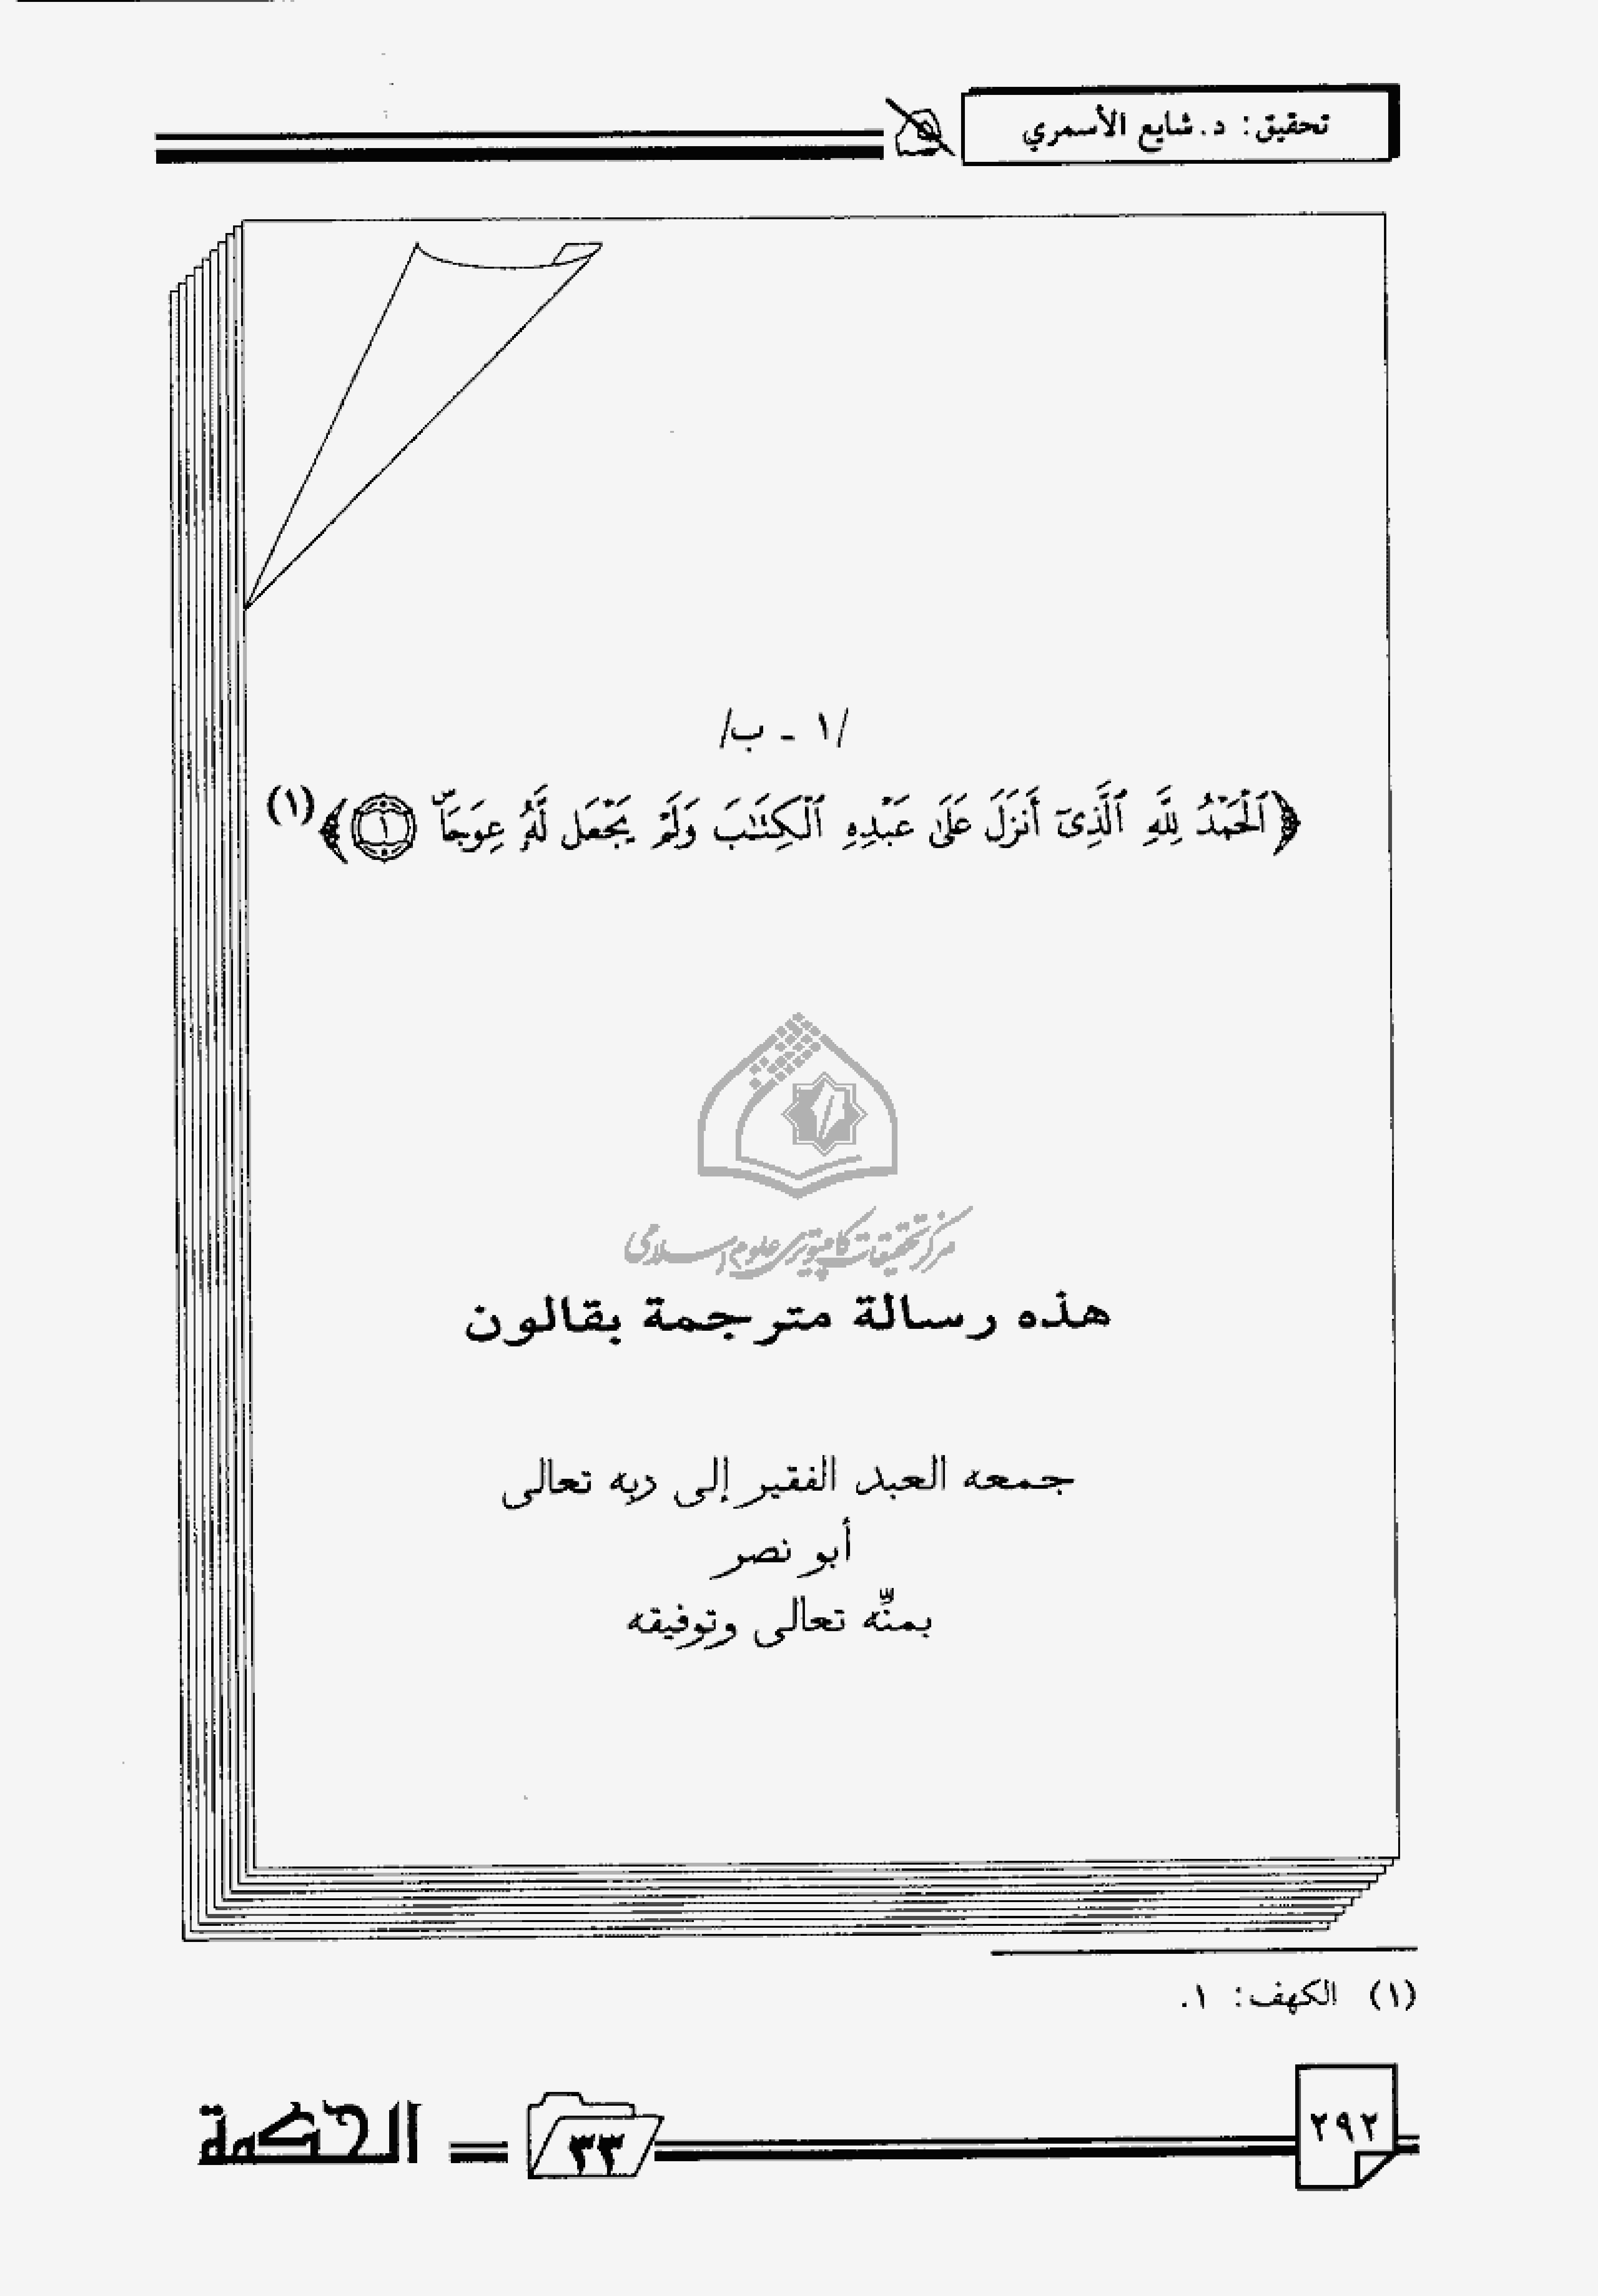 تحقيق: د. شايع الأسمري
/١ - ب/
﴿ٱلْحَمْدُ لِلَّهِ ٱلَّذِىٓ أَنزَلَ عَلَىٰ عَبْدِهِ ٱلْكِتَٰبَ وَلَمْ يَجْعَل لَّهُۥ عِوَجَاۜ ١﴾(١)
مركز تحقيقات كامپيوترى علوم اسلامى
هذه رسالة مترجمة بقالون
جمعه العبد الفقير إلى ربه تعالى
أبو نصر
بمنِّه تعالى وتوفيقه
(١) الكهف: ١.
٢٩٢
٣٣
الحكمة